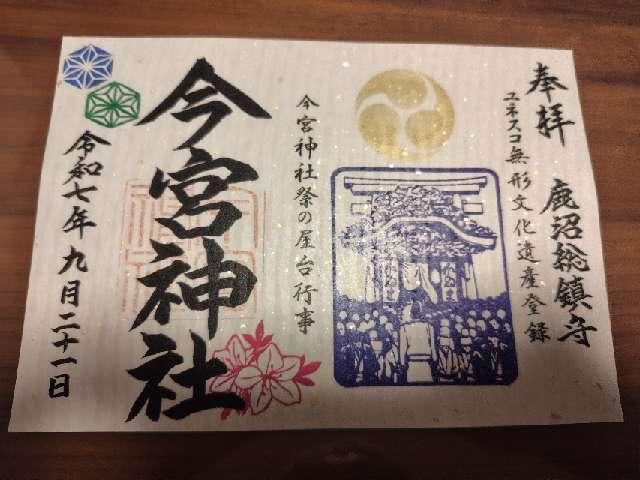 奉拝
鹿沼総鎮守
ユネスコ無形文化遺産登録
今宮神社祭の屋台行事
今宮神社
令和七年九月二十一日